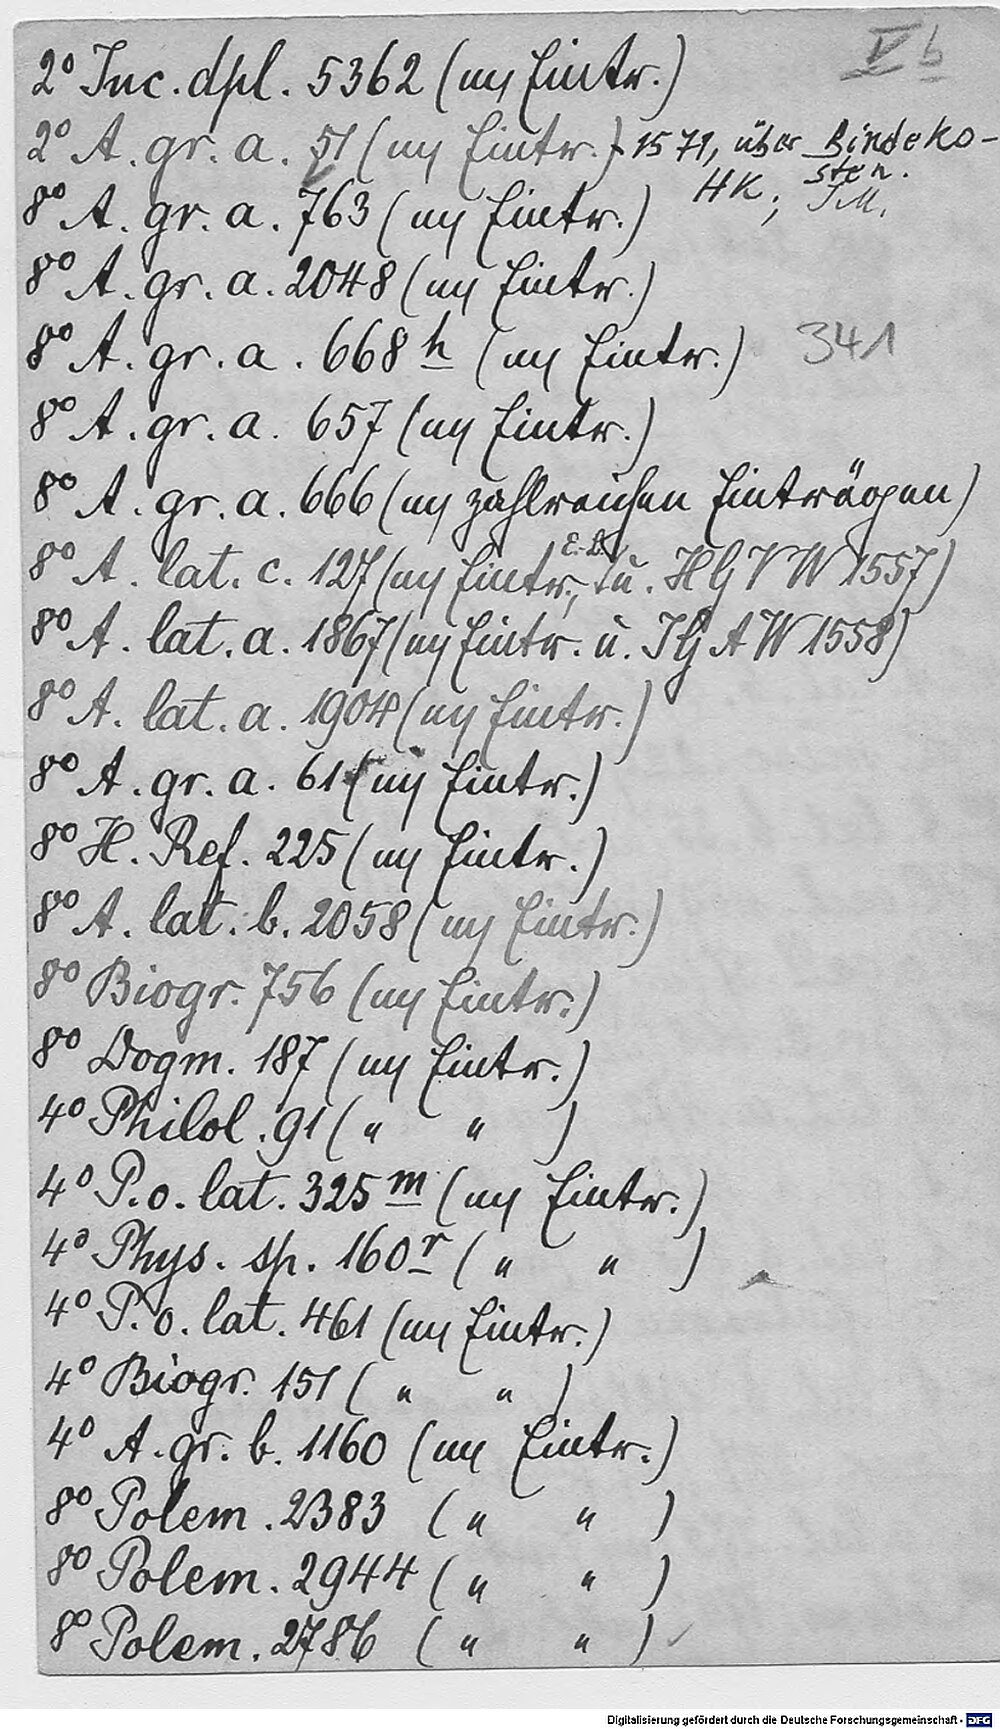 V b
2° Inc. dpl. 5362 (m Eintr.)
2° A. gr. a. 51 (m Eintr.) 1571, über Bindeko-
sten.
HK; JM.
8° A. gr. a. 763 (m Eintr.)
8° A. gr. a. 2048 (m Eintr.)
8° A. gr. a. 668 h (m Eintr.) 341
8° A. gr. a. 657 (m Eintr.)
8° A. gr. a. 666 (m zahlreichen Einträgen)
8° A. lat. c. 127 (m Eintr., u. HGVW 1557)
8° A. lat. a. 1867 (m Eintr. u. JGAW 1558)
8° A. lat. a. 1904 (m Eintr.)
8° A. gr. a. 61 (m Eintr.)
8° H. Ref. 225 (m Eintr.)
8° A. lat. b. 2058 (m Eintr.)
8° Biogr. 756 (m Eintr.)
8° Dogm. 187 (m Eintr.)
4° Philol. 91 ( " " )
4° P. o. lat. 325 m (m Eintr.)
4° Phys. sp. 160 r ( " " )
4° P. o. lat. 461 (m Eintr.)
4° Biogr. 151 ( " " )
4° A. gr. b. 1160 (m Eintr.)
8° Polem. 2383 ( " " )
8° Polem. 2944 ( " " )
8° Polem. 2786 ( " " )
Digitalisierung gefördert durch die Deutsche Forschungsgemeinschaft - DFG